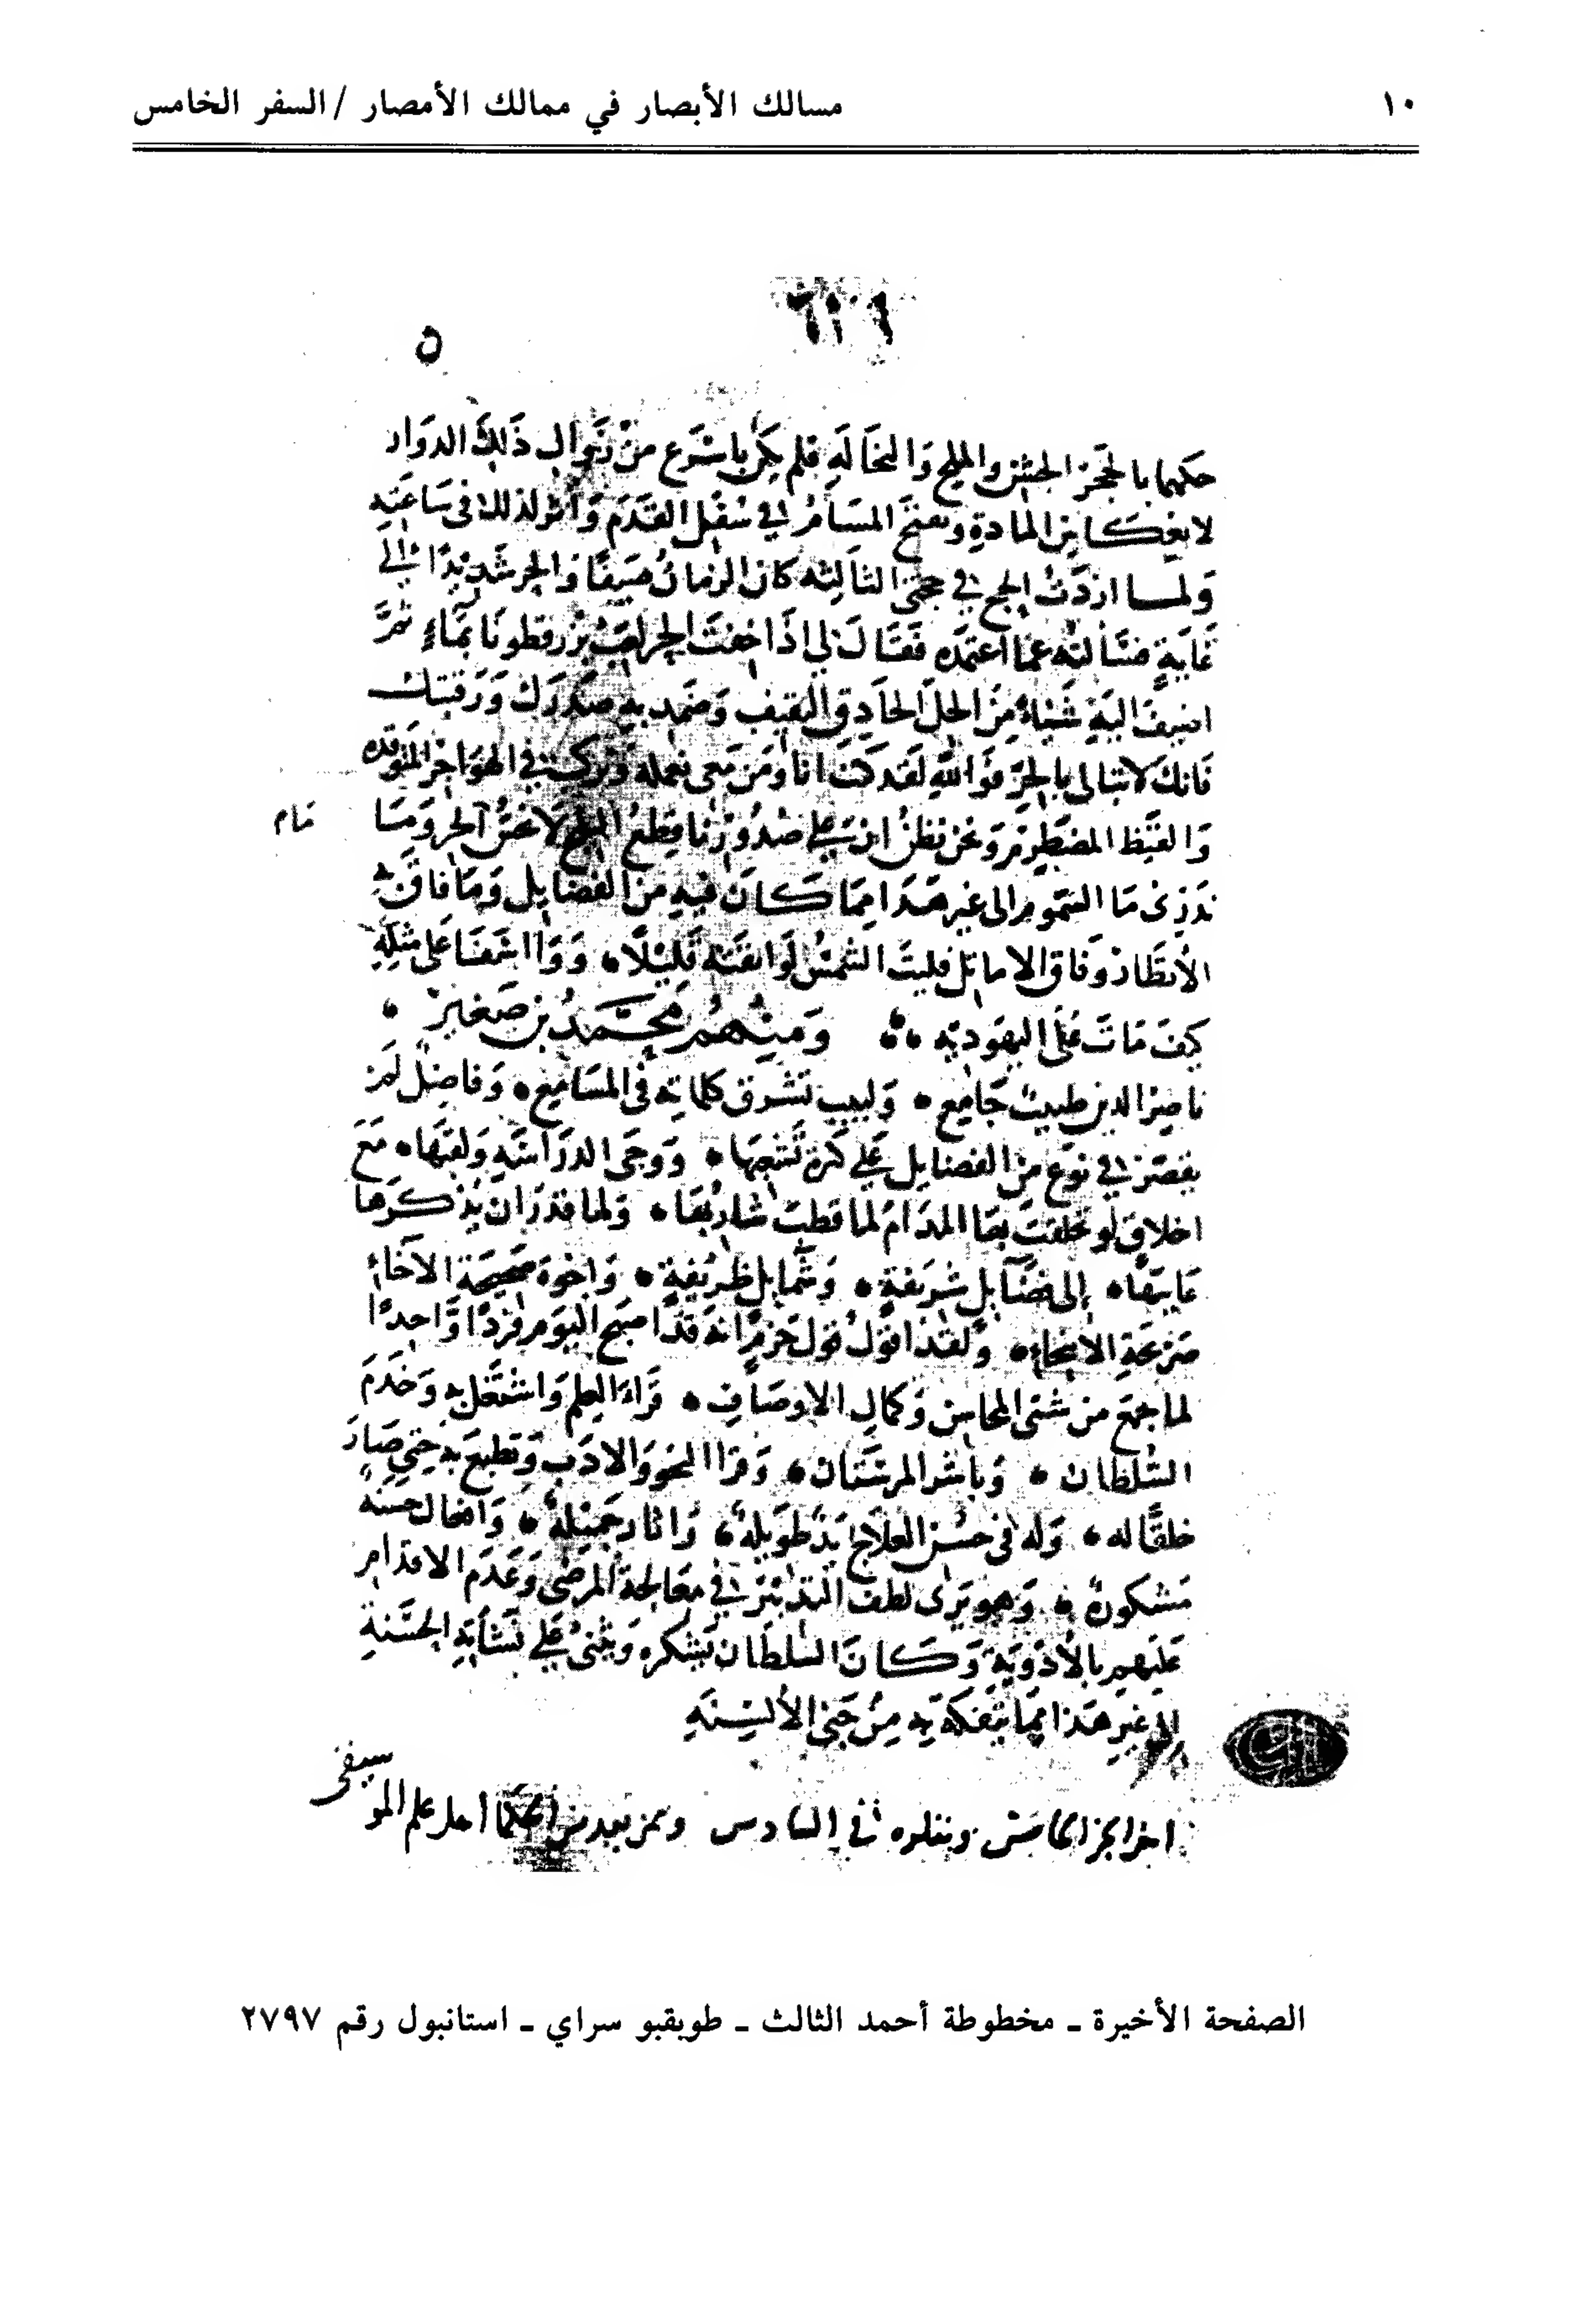 ١٠
مسالك الأبصار في ممالك الأمصار / السفر الخامس
٥
حكهما بالحجر الخشن والملح والنخالة فلم يكن باسرع من زوال ذلك الدوار
لانعكاس المادة وتفتح المسام في سفل القدم واثر لذلك في ساعته
ولما اردت الحج في حجتى الثالثه كان الزمان صيفا والحر شديدا الى
غاية فسألته عما اعتمده فقال لي اذا خفت الحر بزرقطونا بماء ثمَّ
اضيف اليه شياء من الخل الحاذق الثقيف وضمد به صدرك ورقبتك
فانك لا تبالى بالحر فوالله لقد كنت انا ومن معى نعمله ونركب في الهواجر المتوقده
والقيظ المضطرم ونحن نظن ان على صدورنا قطع الثلج لا نحس الحر وما
ندرى ما السموم الى غير هذا مما كان فيه من الفضايل وما فاق به
مام
الأنظار وفاق الاماثل فليت الشمس لو ابقته قليلا، وواا اسفنا على مثله
كيف مات على اليهوديه ومنهم محمد بن صغير
ناصر الدين طبيب جامع، ولبيب تشرق كلماته فى المسامع، وفاضل لم
يقصر في نوع من الفضايل على كثرة شعبها، ووجى الدراسة ولعبها، مع
اخلاق لو تخلقت بها المدام لما قطب شاربها، ولما قدر ان يذكرها
عايبها، إلى فضايل شريفة، وشمايل ظريفة، واخوة صحيحة الآخاء
ولقد اقول قول حزم انه قد اصبح اليوم فردا واحدا
لما جمع من شتى المحاسن وكمال الاوصاف، قراء العلم واشتغل به وخدم
السلطان، وباشر المرستان، وقرا النحو والادب وتطبع به حتى صار
خلقا له، وله فى حسن العلاج يد طويلة، واثار جميلة، وافعال حسنه
مشكورة، وهو يرى لطف التدبير في معالجة المرضى وعدم الاقدام
عليهم بالأدوية وكان السلطان يشكره ويثنى على نشأته الحسنة
إلى غير هذا مما يتفكه به من جنى الألسنه
اخر الجز الخامس ويتلوه في السادس ومن بعد من الحكما أهل علم الموسيقى
الصفحة الأخيرة ـ مخطوطة أحمد الثالث ـ طوبقبو سراي ـ استانبول رقم ٢٧٩٧